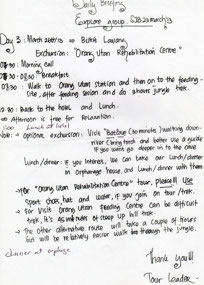 Daily Briefing
Explore group SZB 23 march 13
Day 3 : March 26th 13 → Bukit Lawang
Excursion : "Orang Utan Rehabilitation Centre"
07:30 : Morning call
07:30 - 08:30 Breakfast
08:30 : Walk to Orang Utan station and then on to the feeding-
site, after feeding session and do a hours jungle trek.
12:00 Back to the hotel and Lunch.
→ Afternoon is free for relaxation.
Lunch at hotel
Note : → optional excursion : Visit "Bat Cave (30 minute) walking down-
river Lining torch and better use a guide
if you want go deeper in to the cave
Lunch/dinner : if you interest, We can take our lunch/dinner
in Orphanage house, and Lunch/dinner with them
→ For "Orang utan Rehabilitation Centre" tour, Please!!! Use
Sport shoes, hat and water, if you join on tour/trek.
→ For Visit Orang utan Feeding Centre can be difficult
trek, it's minutes of steep up hill trek.
→ The other alternative route will take a couple of hours
but will be relatively easier walk through the jungle.
dinner at orphanage
Thank you!!!
Tour Leader -